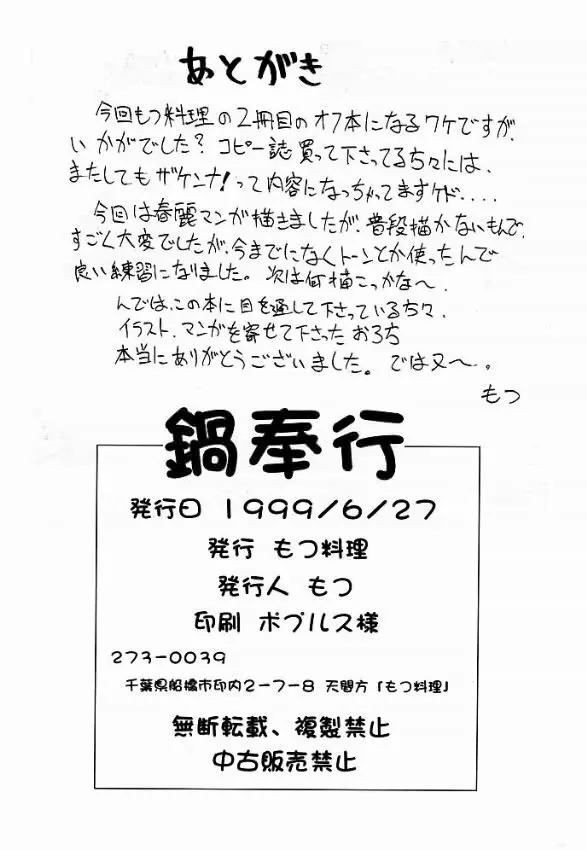 あとがき
今回もつ料理の2冊目のオフ本になるワケですが、
いかがでした? コピー誌買って下さってる方々には、
またしてもザケンナ!って内容になっちゃってますケド....
今回は春麗マンガ描きましたが、普段描かないもんで、
すごく大変でしたが、今までになくトーンとか使ったんで
良い練習になりました。次は何描こっかな〜
んでは、この本に目を通して下さっている方々、
イラスト、マンガを寄せて下さったおろち
本当にありがとうございました。では又〜。
もつ
鍋奉行
発行日 1999/6/27
発行 もつ料理
発行人 もつ
印刷 ポプルス様
273-0039
千葉県船橋市印内2-7-8 天間方「もつ料理」
無断転載、複製禁止
中古販売禁止